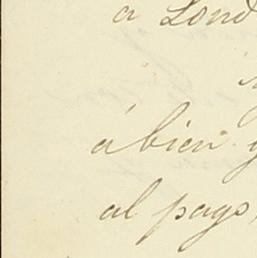 a Lond
á bien
al pays,